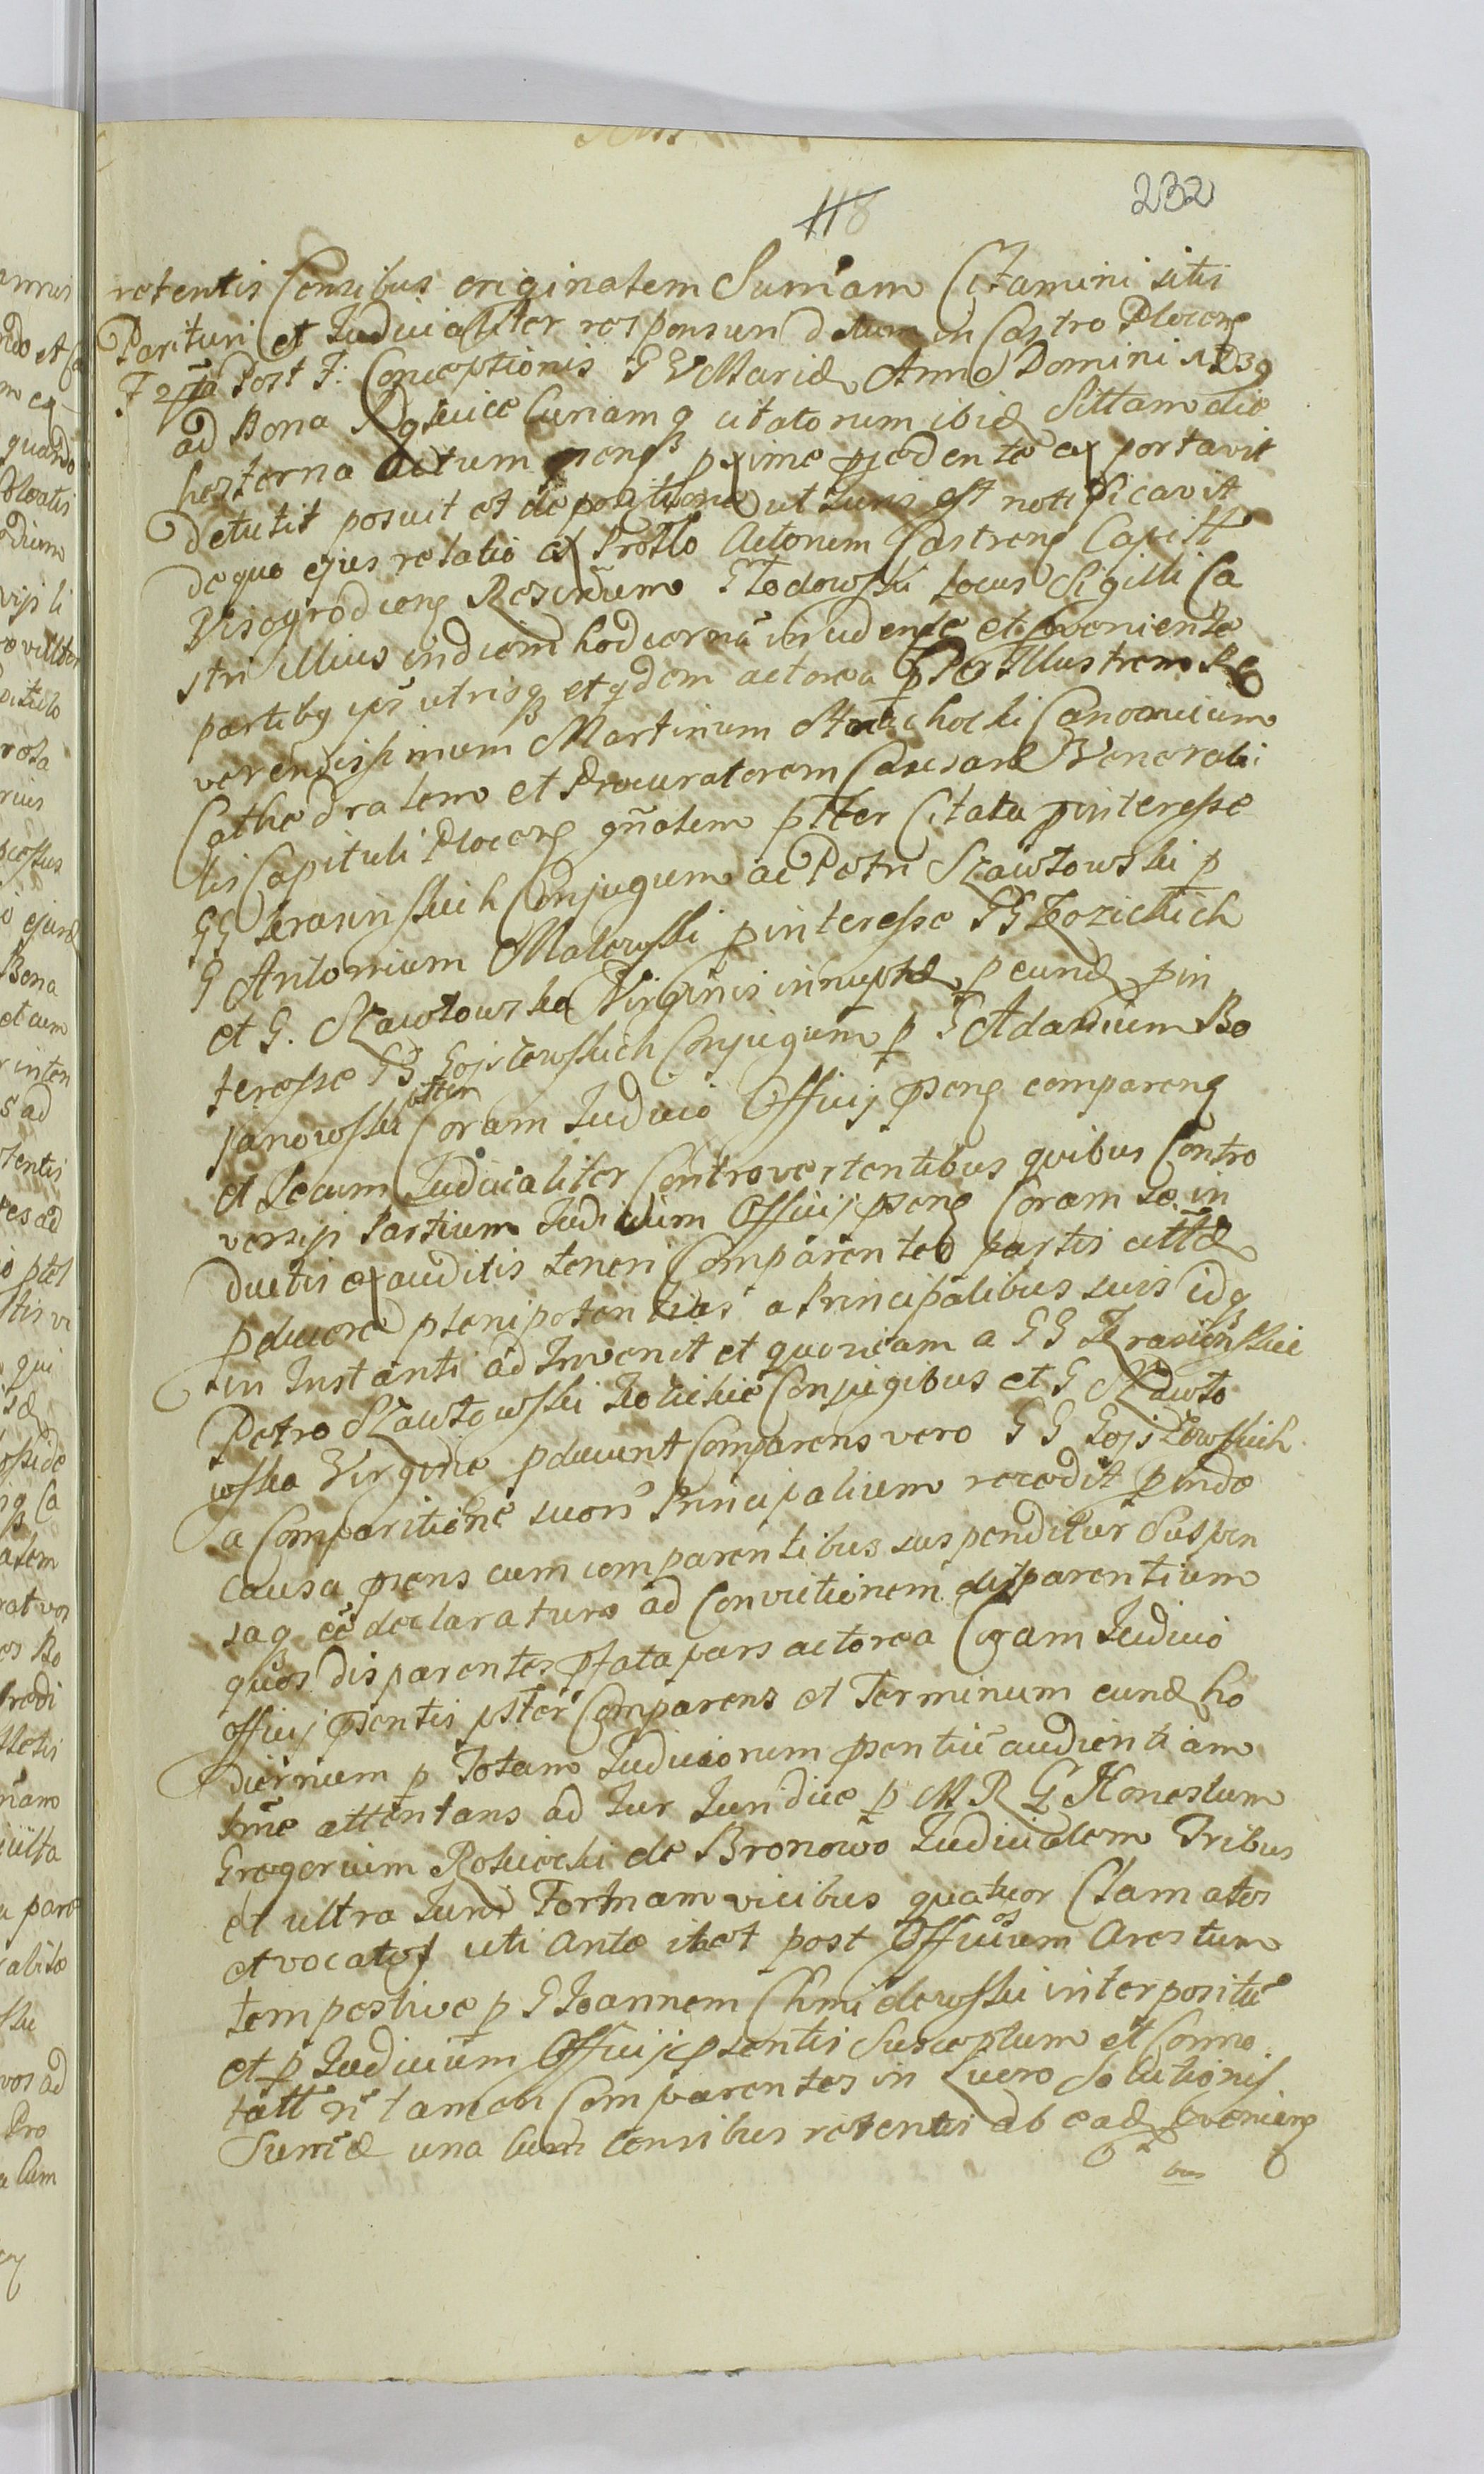 118
232
retentis Censibus originalem Summam Citamini sitis
Parituri et Judicialiter responsuri datum in Castro Plocen
F 2da Post F: Conceptionis G V Mariæ Anno Domini 1739
ad Bona Curiamq citatorum ibid Sittam die
hesterna actum psens pxime pcedente exportavit
Detulit posuit et de positione ut Juris est notificavit
de quo ejus relatio ex Protlo Actorum Castren Capitt
Visogrodicen Rescindum Głodowski Locus Sigilli Ca
stri illius in diem hodiernã incidente et pveniente
partibq ipis utrisqꝫ et qdem actorea p Per Illustrem Re
verendissimum Martinum Canonicum
Cathedralem et Procuratorem Causarũ Venerabi
lis Capituli Plocen gñalem ptter Citata pinteresse
GG Krasinskich Conjugum ac Petri Szawłowski p
G Antonium Malewski pinteresse GG Łozickich
et G. Szawłowska Virginis innuptæ p eund pin
teresse GG Gojslewskich Conjugum p G Adamum Bo
janowski ptter Coram Judicio Officij psens comparens
et Secum Judicialiter Controvertentibus quibus Contro
versijs Partium Judicium Officij psens Coram se in
ductis exauditis teneri Comparentes partis cittæ
pducere plenipotentias a Principalibus suis idq
in Instanti ad Invenit et quoniam a GG Krasinskie
Petro Szawłowski Łozickie Conjugibus et G Szawło
wska Virgine pducunt Comparens vero GG Gojslewskich
a Comparitione suorũ Principalium recedit pinde
Causa psens cum comparentibus suspenditur Suspen
saq eẽ declaratura ad Convictionem disparentium
quos disparentes pfata pars actorea Coram Judicio
officij psentis ptter Comparens et Terminum eund ho
diernum p Totam Judiciorum psentiũ audientiam
tme attentans ad Jur Juridice p M R G Honestum
Gregorium de Bronowo Judicialem Tribus
et ultra Juris Formam vicibus quatuor Clamatos
et vocatos uti ante itaet post Officiosum Arestum
tempestive p G Joannem Chmielewski interpositũ
et p Judicium Officij psentis Susceptum et Conno
tatt ñ tamen Comparentes in Lucro Solutionis
Summæ una Cum Censibus retentis ab ead pveniens
bus